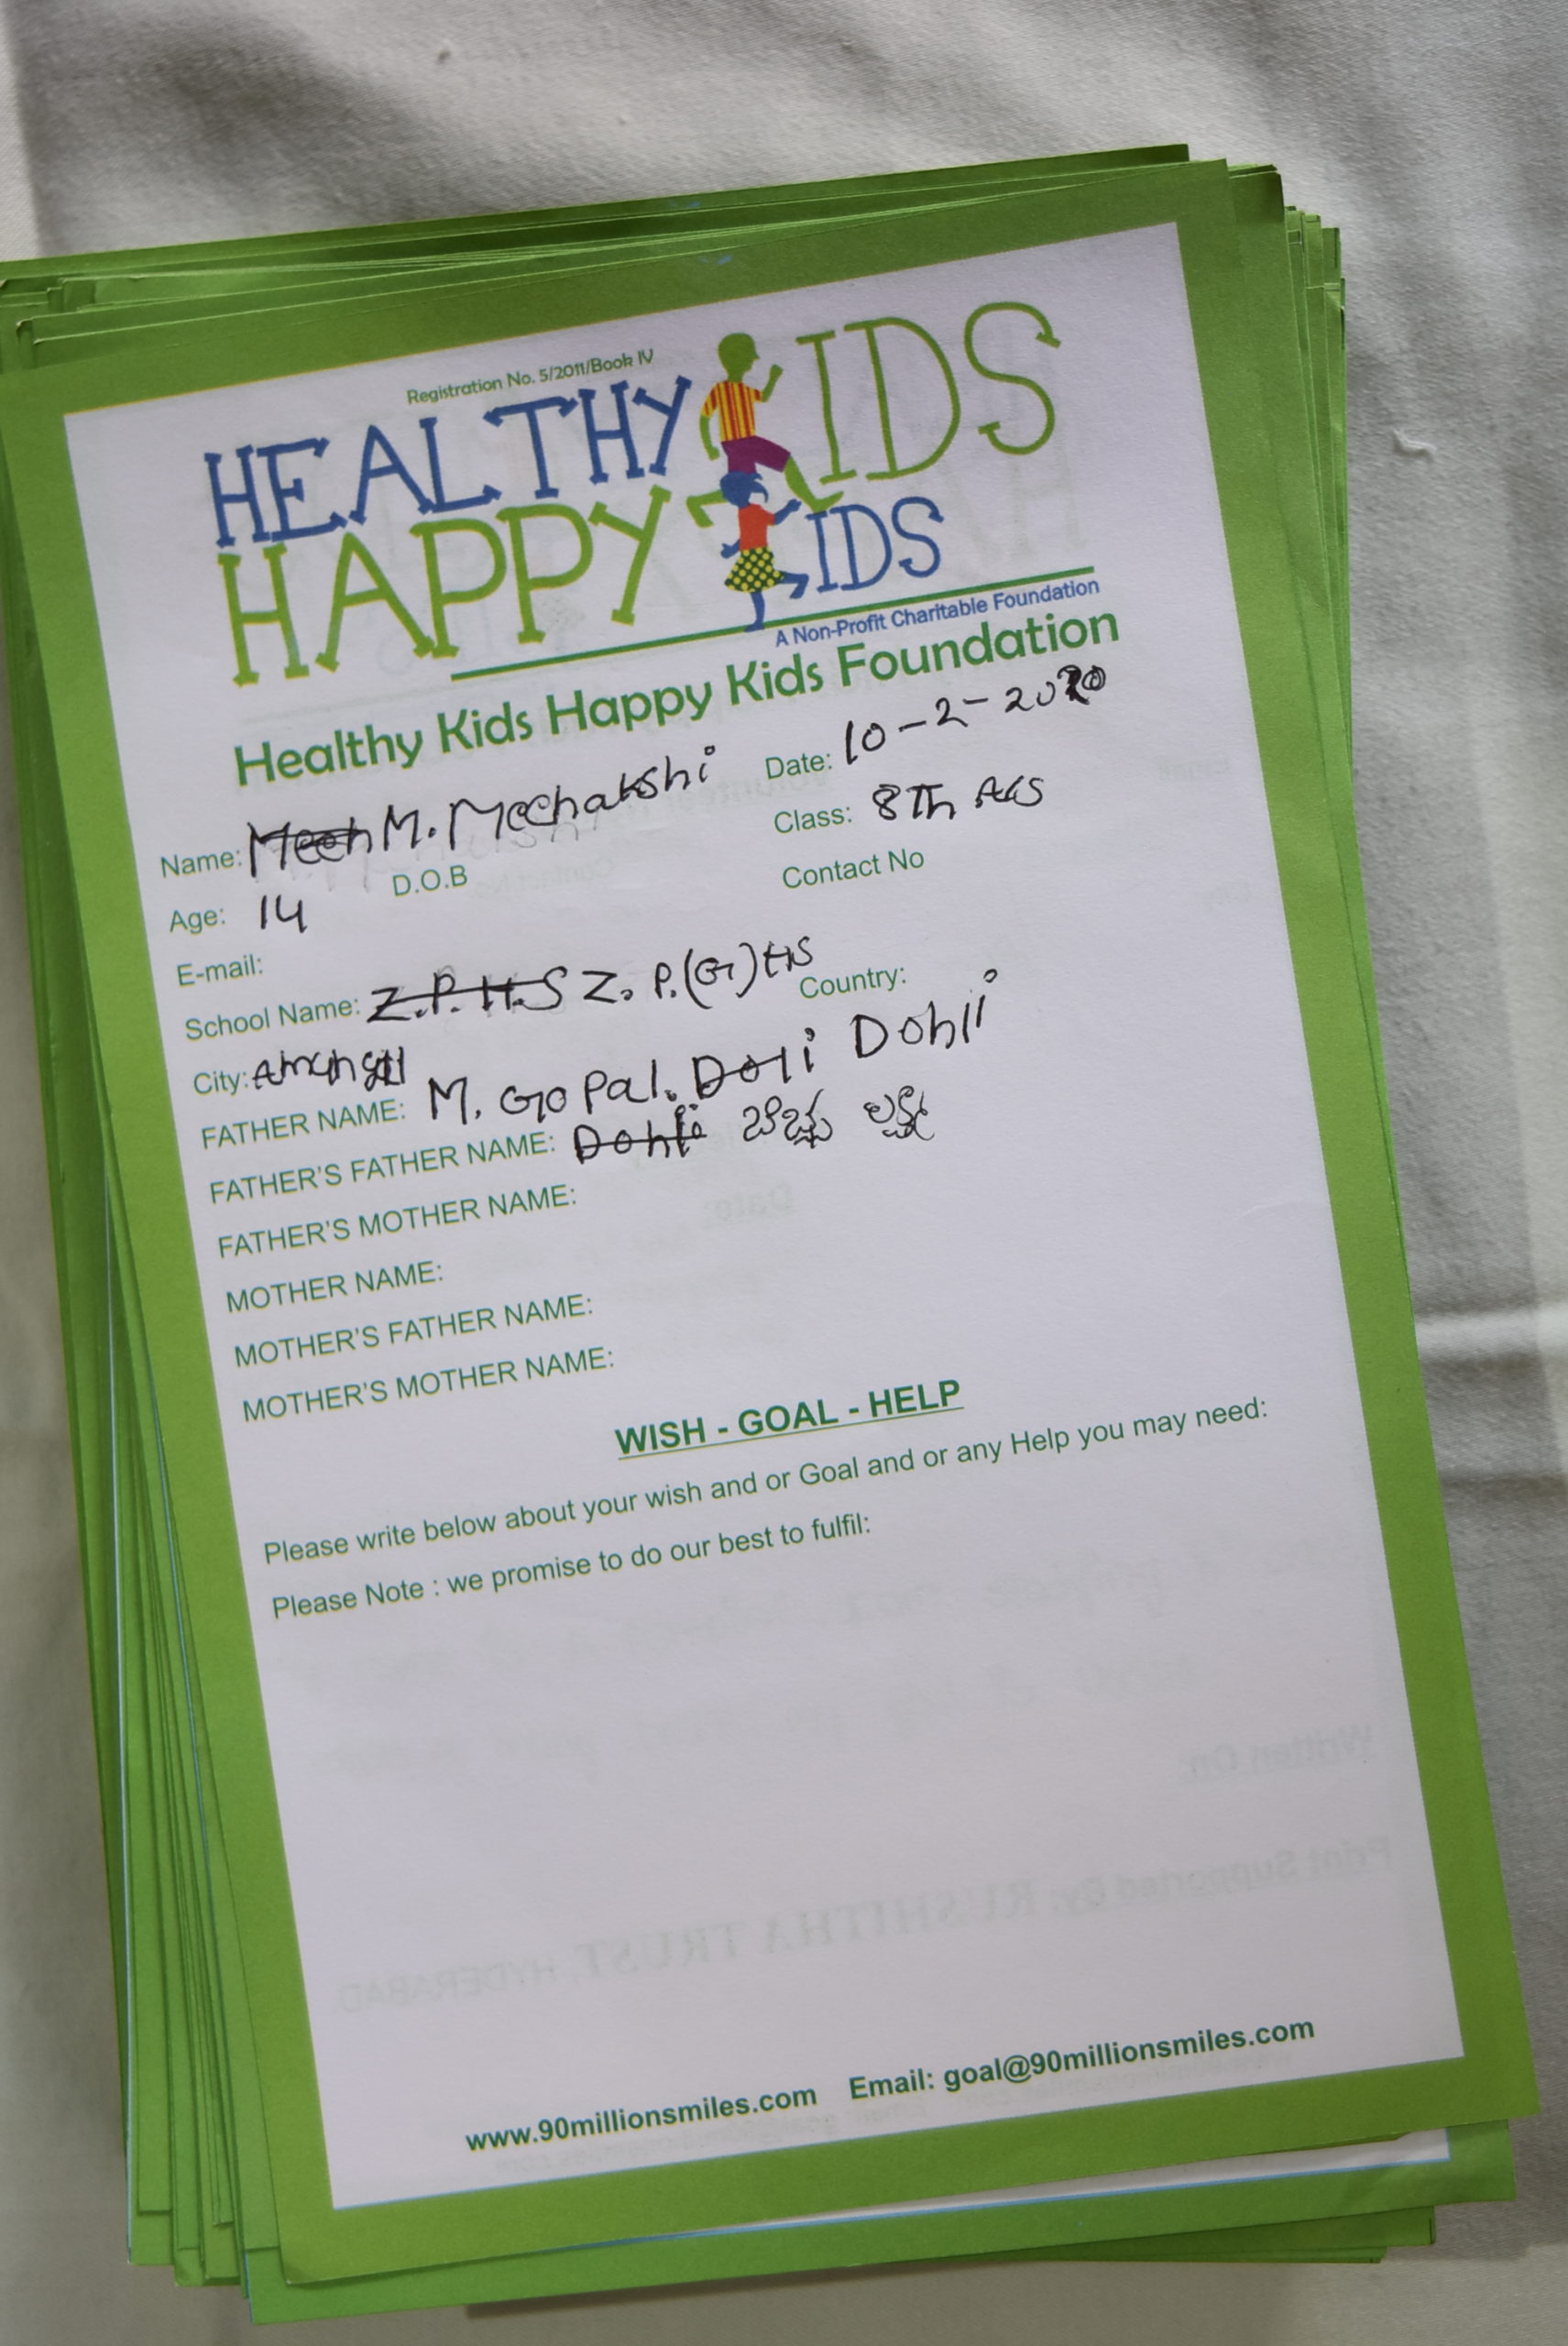 Registration No. 5/2011/Book IV
HEALTHY KIDS
HAPPY KIDS
A Non-Profit Charitable Foundation
Healthy Kids Happy Kids Foundation
Name: Meen M. Meenakshi Date: 10-2-2020
Age: 14 D.O.B Class: 8Th
Contact No
E-mail:
School Name: Z.P.H.S Z.P.(G)HS Country:
City:
FATHER NAME: M. GoPal. Doli Dohli
FATHER'S FATHER NAME: Dohli బిచ్చు లక్ష్మి
FATHER'S MOTHER NAME:
MOTHER NAME:
MOTHER'S FATHER NAME:
MOTHER'S MOTHER NAME:
WISH - GOAL - HELP
Please write below about your wish and or Goal and or any Help you may need:
Please Note : we promise to do our best to fulfil:
www.90millionsmiles.com Email: goal@90millionsmiles.com